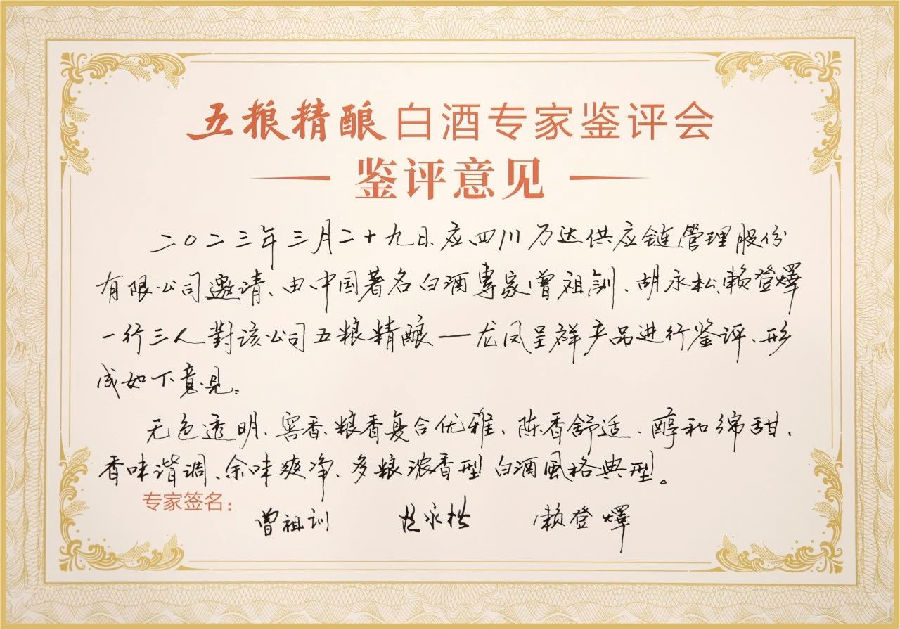 五粮精酿白酒专家鉴评会
鉴评意见
二〇二三年三月二十九日应四川万达供应链管理股份
有限公司邀请、由中国著名白酒專家曾祖訓、胡永松、賴登燡
一行三人對该公司五粮精酿—龙凤呈群产品进行鉴评、形
成如下意見。
无色透明、窖香、粮香复合优雅、陈香舒适、醇和绵甜、
香味谐调、余味爽净、多粮浓香型白酒風格典型。
专家签名：
曾祖训 胡永松 賴登燡